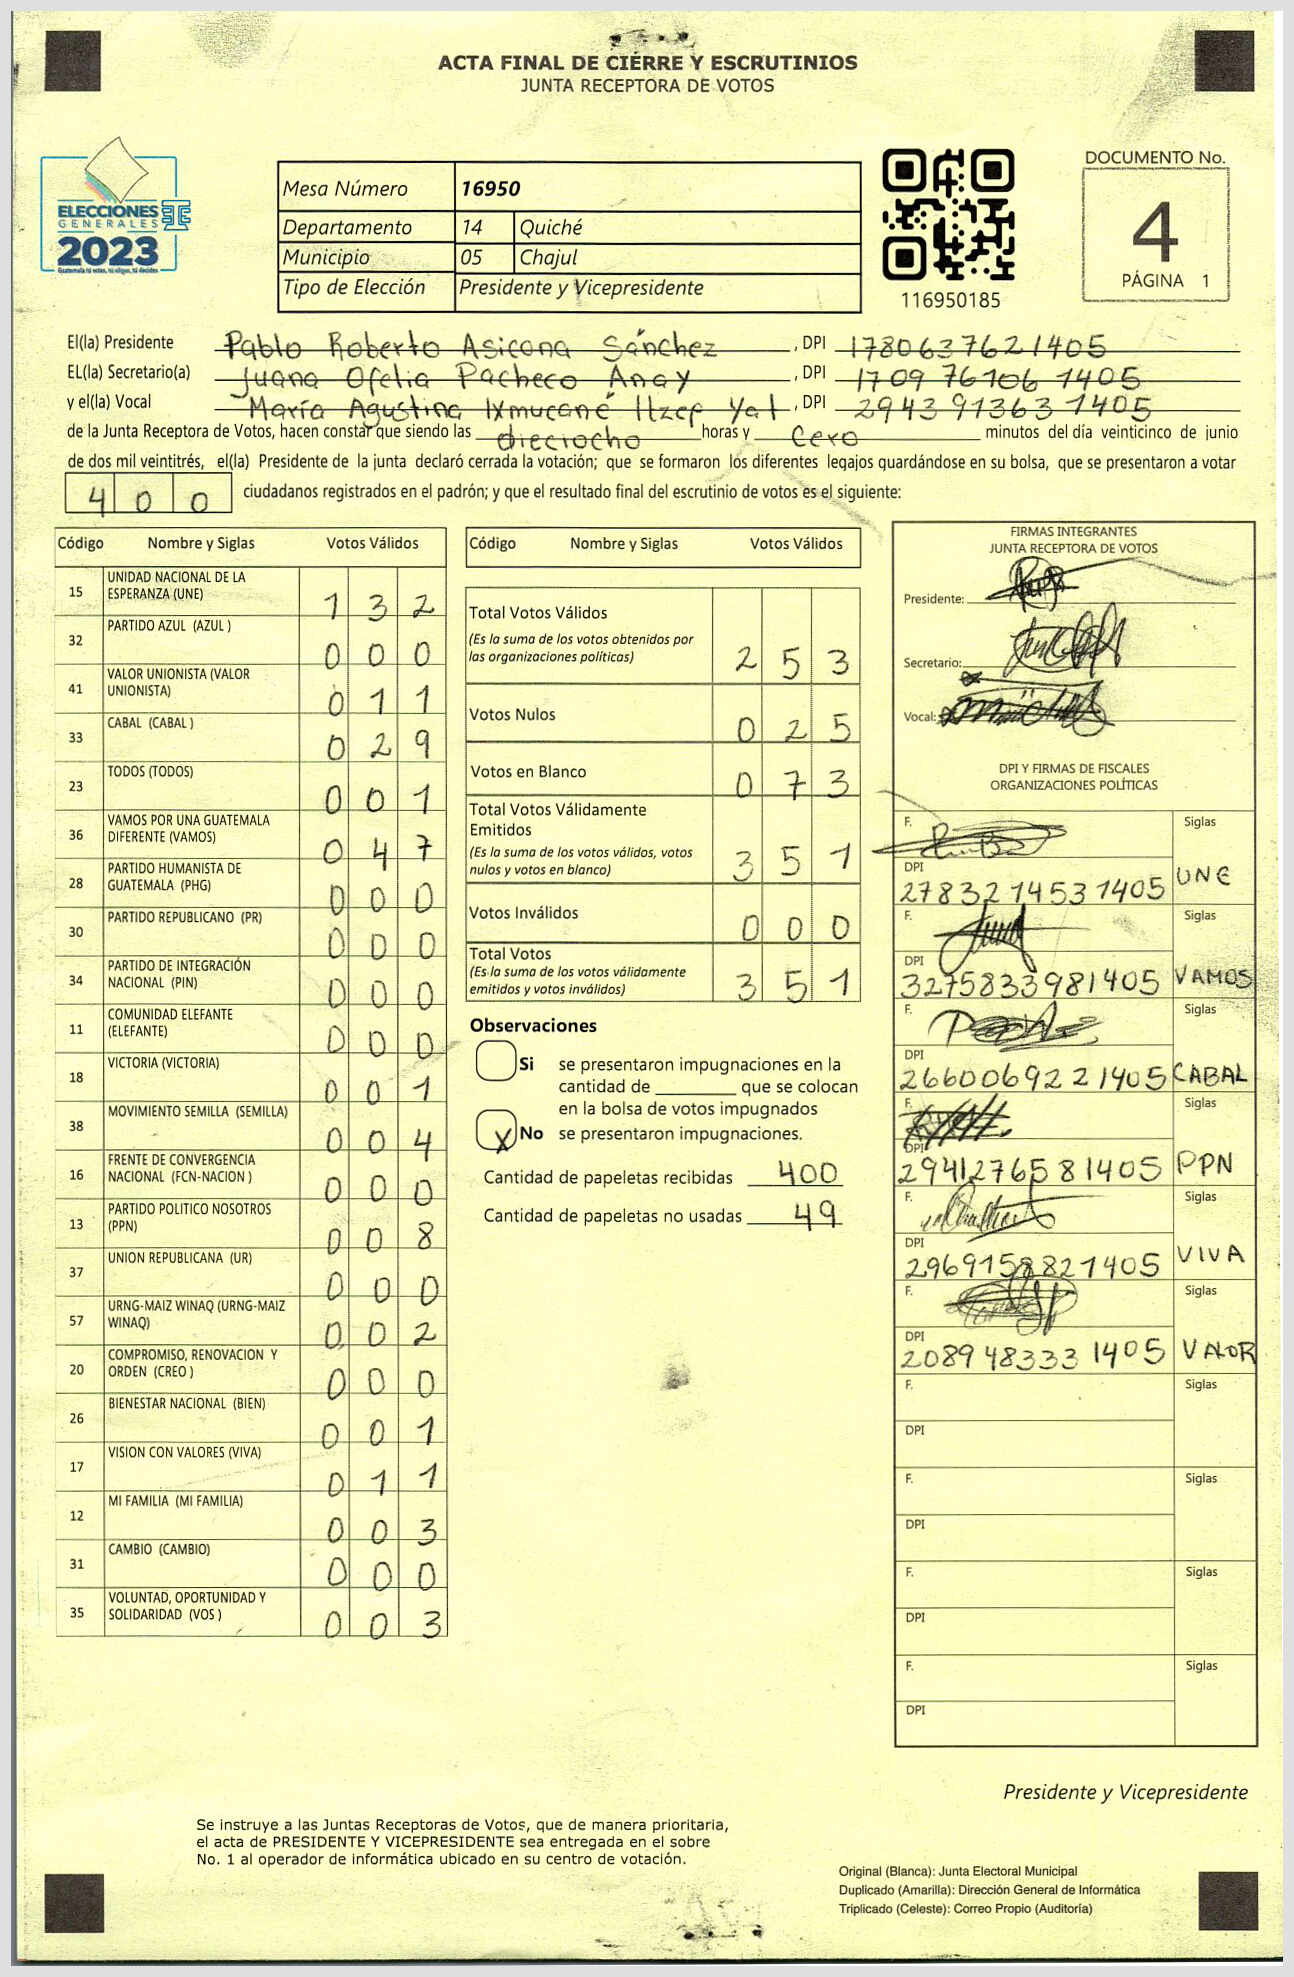 ACTA FINAL DE CIERRE Y ESCRUTINIOS
JUNTA RECEPTORA DE VOTOS
ELECCIONES
GENERALES
2023
Guatemala tú votas, tú eliges, tú decides
Mesa Número 16950
Departamento 14 Quiché
Municipio 05 Chajul
Tipo de Elección Presidente y Vicepresidente
116950185
DOCUMENTO No.
4
PÁGINA 1
El(la) Presidente Pablo Roberto Asicona Sánchez, DPI 1780637621405
EL(la) Secretario(a) Juana Ofelia Pacheco Anay, DPI 1709 76106 1405
y el(la) Vocal María Agustina Ixmucané Itzep Yat, DPI 294391363 1405
de la Junta Receptora de Votos, hacen constar que siendo las dieciocho horas y cero minutos del día veinticinco de junio
de dos mil veintitrés, el(la) Presidente de la junta declaró cerrada la votación; que se formaron los diferentes legajos guardándose en su bolsa, que se presentaron a votar
400 ciudadanos registrados en el padrón; y que el resultado final del escrutinio de votos es el siguiente:
Código Nombre y Siglas Votos Válidos
15 UNIDAD NACIONAL DE LA ESPERANZA (UNE) 132
32 PARTIDO AZUL (AZUL ) 000
41 VALOR UNIONISTA (VALOR UNIONISTA) 011
33 CABAL (CABAL ) 029
23 TODOS (TODOS) 001
36 VAMOS POR UNA GUATEMALA DIFERENTE (VAMOS) 047
28 PARTIDO HUMANISTA DE GUATEMALA (PHG) 000
30 PARTIDO REPUBLICANO (PR) 000
34 PARTIDO DE INTEGRACIÓN NACIONAL (PIN) 000
11 COMUNIDAD ELEFANTE (ELEFANTE) 000
18 VICTORIA (VICTORIA) 001
38 MOVIMIENTO SEMILLA (SEMILLA) 004
16 FRENTE DE CONVERGENCIA NACIONAL (FCN-NACION ) 000
13 PARTIDO POLITICO NOSOTROS (PPN) 008
37 UNION REPUBLICANA (UR) 000
57 URNG-MAIZ WINAQ (URNG-MAIZ WINAQ) 002
20 COMPROMISO, RENOVACION Y ORDEN (CREO ) 000
26 BIENESTAR NACIONAL (BIEN) 001
17 VISION CON VALORES (VIVA) 011
12 MI FAMILIA (MI FAMILIA) 003
31 CAMBIO (CAMBIO) 000
35 VOLUNTAD, OPORTUNIDAD Y SOLIDARIDAD (VOS ) 003
Código Nombre y Siglas Votos Válidos
Total Votos Válidos 253
(Es la suma de los votos obtenidos por
las organizaciones políticas)
Votos Nulos 025
Votos en Blanco 073
Total Votos Válidamente
Emitidos 351
(Es la suma de los votos válidos, votos
nulos y votos en blanco)
Votos Inválidos 000
Total Votos 351
(Es la suma de los votos válidamente
emitidos y votos inválidos)
Observaciones
Si se presentaron impugnaciones en la
cantidad de ________ que se colocan
en la bolsa de votos impugnados
X No se presentaron impugnaciones.
Cantidad de papeletas recibidas 400
Cantidad de papeletas no usadas 49
FIRMAS INTEGRANTES
JUNTA RECEPTORA DE VOTOS
Presidente:
Secretario:
Vocal:
DPI Y FIRMAS DE FISCALES
ORGANIZACIONES POLÍTICAS
F. Siglas
DPI 27832 14531405 UNE
F. Siglas
DPI 3275833981405 VAMOS
F. Siglas
DPI 2660069221405 CABAL
F. Siglas
DPI 2941276581405 PPN
F. Siglas
DPI 2969158821405 VIVA
F. Siglas
DPI 208948333 1405 VALOR
F. Siglas
DPI
F. Siglas
DPI
F. Siglas
DPI
F. Siglas
DPI
Presidente y Vicepresidente
Se instruye a las Juntas Receptoras de Votos, que de manera prioritaria,
el acta de PRESIDENTE Y VICEPRESIDENTE sea entregada en el sobre
No. 1 al operador de informática ubicado en su centro de votación.
Original (Blanca): Junta Electoral Municipal
Duplicado (Amarilla): Dirección General de Informática
Triplicado (Celeste): Correo Propio (Auditoría)